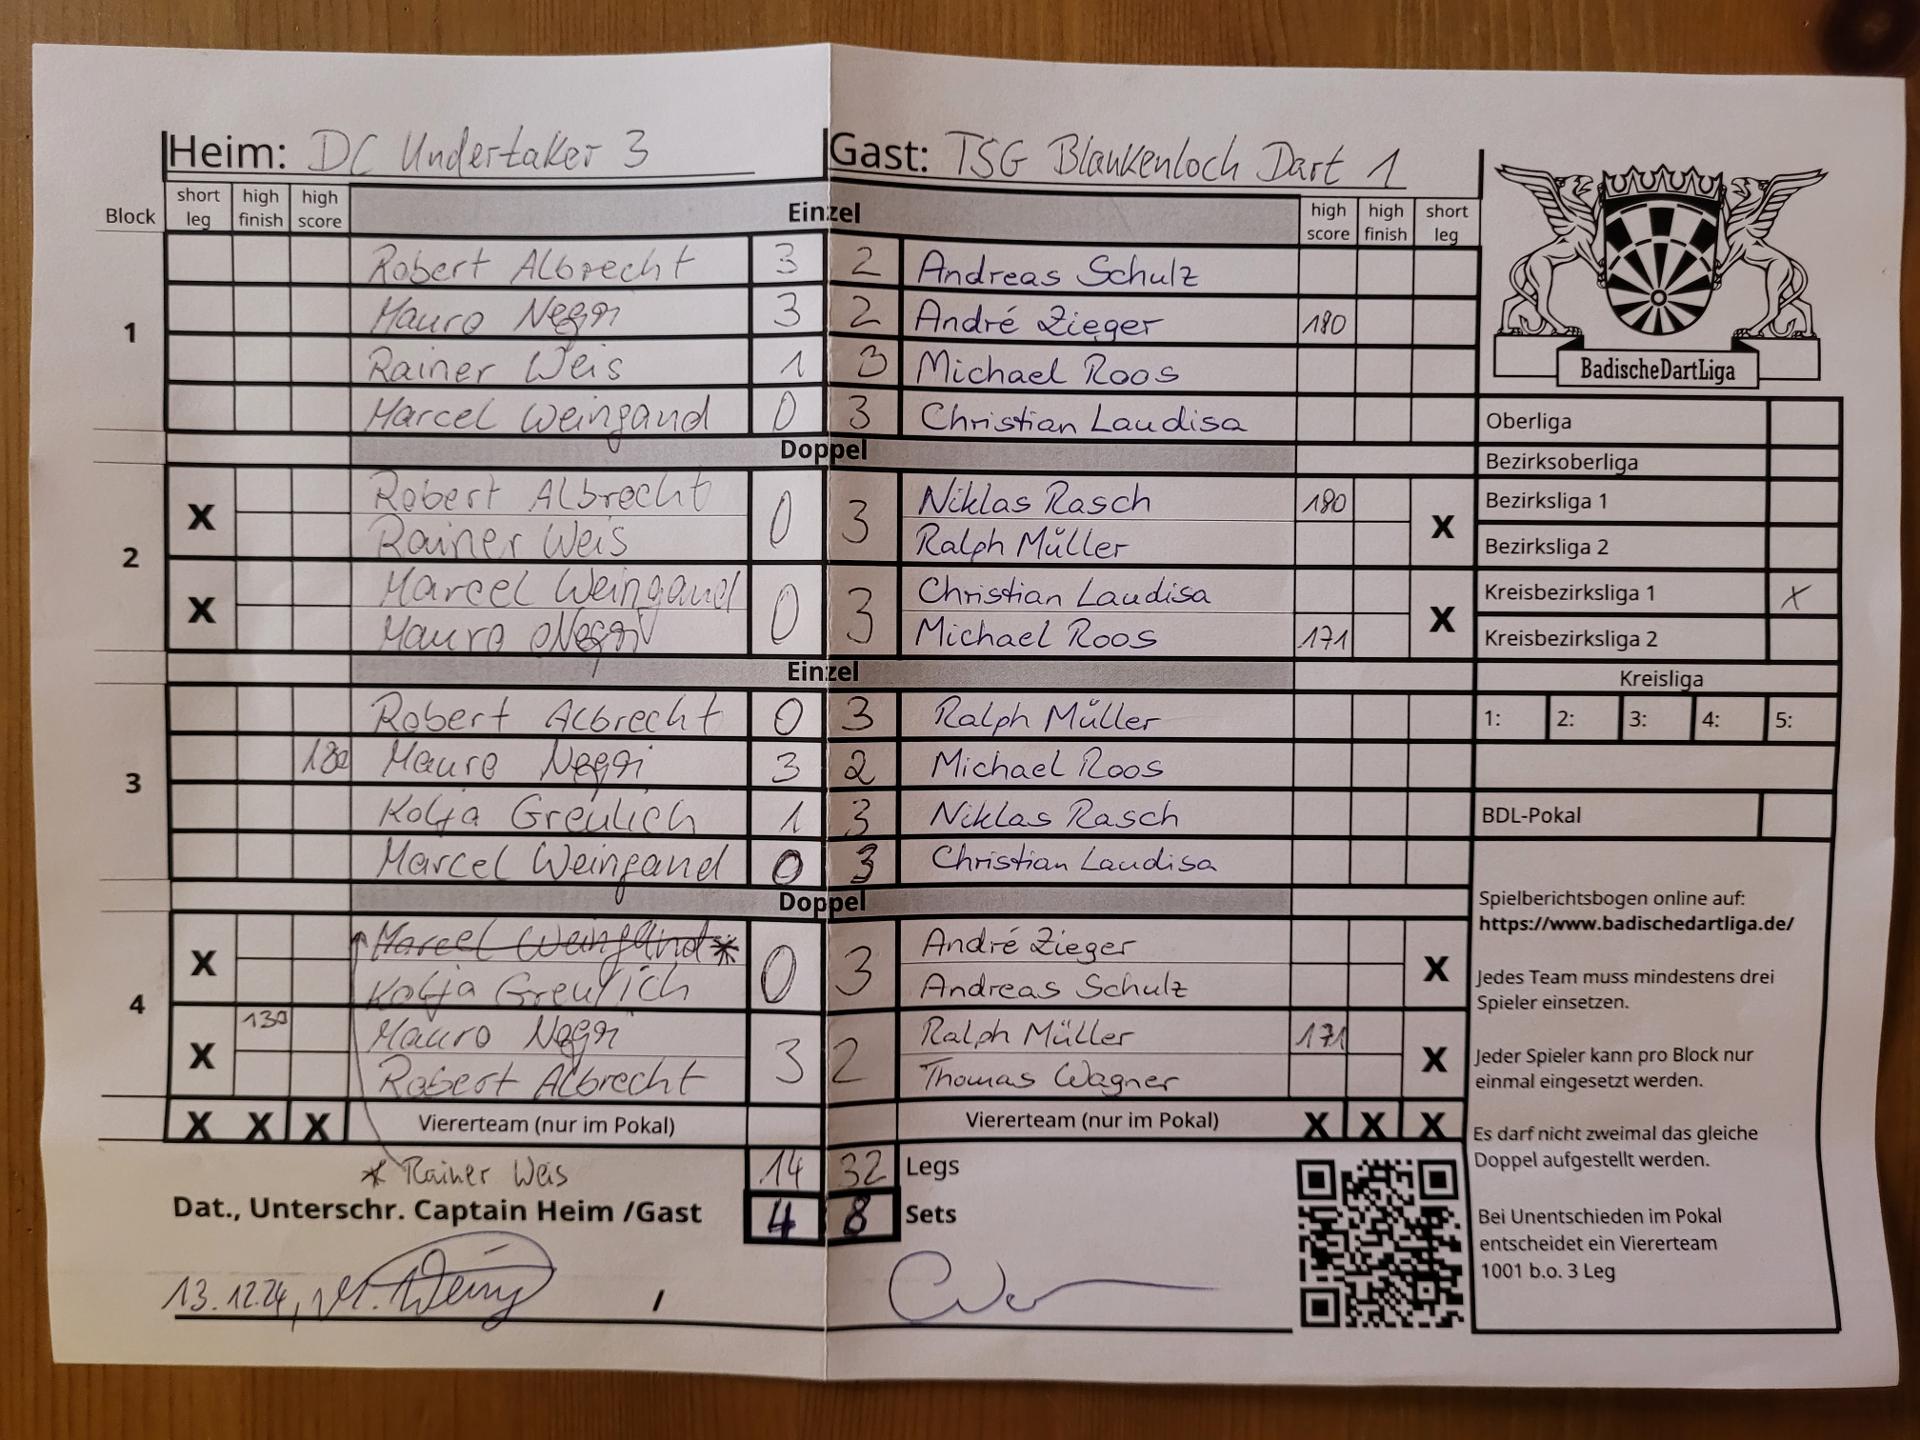 Heim: DC Undertaker 3 Gast: TSG Blankenloch Dart 1
Block short leg high finish high score Einzel high score high finish short leg
BadischeDartLiga
1
Robert Albrecht 3 2 Andreas Schulz
Mauro Negri 3 2 André Zieger 180
Rainer Weis 1 3 Michael Roos
Marcel Weingand 0 3 Christian Laudisa
Doppel
2
X Robert Albrecht 0 3 Niklas Rasch 180 X
Rainer Weis Ralph Müller
X Marcel Weingand 0 3 Christian Laudisa X
Mauro Negri Michael Roos 171
Einzel
3
Robert Albrecht 0 3 Ralph Müller
180 Mauro Negri 3 2 Michael Roos
Kolja Greulich 1 3 Niklas Rasch
Marcel Weingand 0 3 Christian Laudisa
Doppel
4
X Marcel Weingand * 0 3 André Zieger X
Kolja Greulich Andreas Schulz
X 130 Mauro Negri 3 2 Ralph Müller 171 X
Robert Albrecht Thomas Wagner
X X X Viererteam (nur im Pokal) Viererteam (nur im Pokal) X X X
* Rainer Weis 14 32 Legs
Dat., Unterschr. Captain Heim /Gast 4 8 Sets
13.12.24, /
Oberliga
Bezirksoberliga
Bezirksliga 1
Bezirksliga 2
Kreisbezirksliga 1 X
Kreisbezirksliga 2
Kreisliga
1: 2: 3: 4: 5:
BDL-Pokal
Spielberichtsbogen online auf:
https://www.badischedartliga.de/
Jedes Team muss mindestens drei
Spieler einsetzen.
Jeder Spieler kann pro Block nur
einmal eingesetzt werden.
Es darf nicht zweimal das gleiche
Doppel aufgestellt werden.
Bei Unentschieden im Pokal
entscheidet ein Viererteam
1001 b.o. 3 Leg